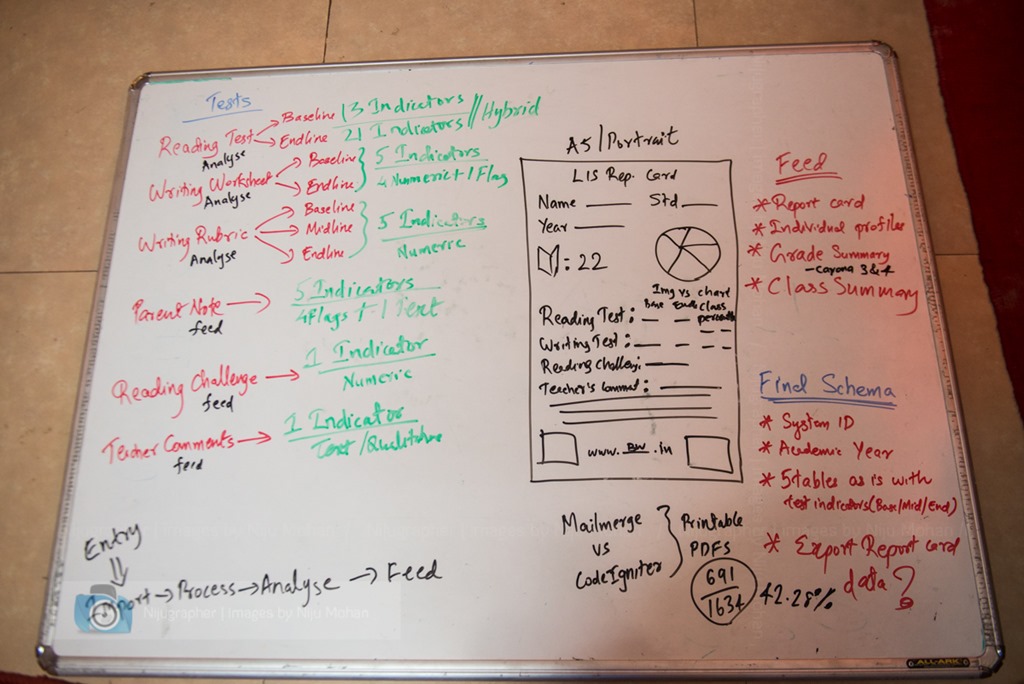 Tests
Reading Test
Analyse
Baseline
Endline
13 Indicators
21 Indicators // Hybrid
Writing Worksheet
Analyse
Baseline
Endline
5 Indicators
4 Numeric + 1 Flag
Writing Rubric
Analyse
Baseline
Midline
Endline
5 Indicators
Numeric
Parent Note
feed
5 Indicators
4 Flags + 1 Text
Reading Challenge
feed
1 Indicator
Numeric
Teacher Comments
feed
1 Indicator
Text / Qualitative
Entry
Import → Process → Analyse → Feed
A5 / Portrait
LIS Rep. Card
Name Std
Year
: 22
Img vs chart
Base End Class
Reading Test:
Writing Test:
Reading Challen:
Teacher's Comment:
www. BW .in
Mailmerge
vs
CodeIgniter
Printable
PDFS
691
1634
42.28%
Feed
* Report card
* Individual profiles
* Grade Summary
- corona 3 & 4
* Class Summary
Final Schema
* System ID
* Academic Year
* 5 tables as is with
test indicators (Base/Mid/End)
* Export Report card
data?
Nijugrapher | Images by Niju Mohan
ALL-ARK